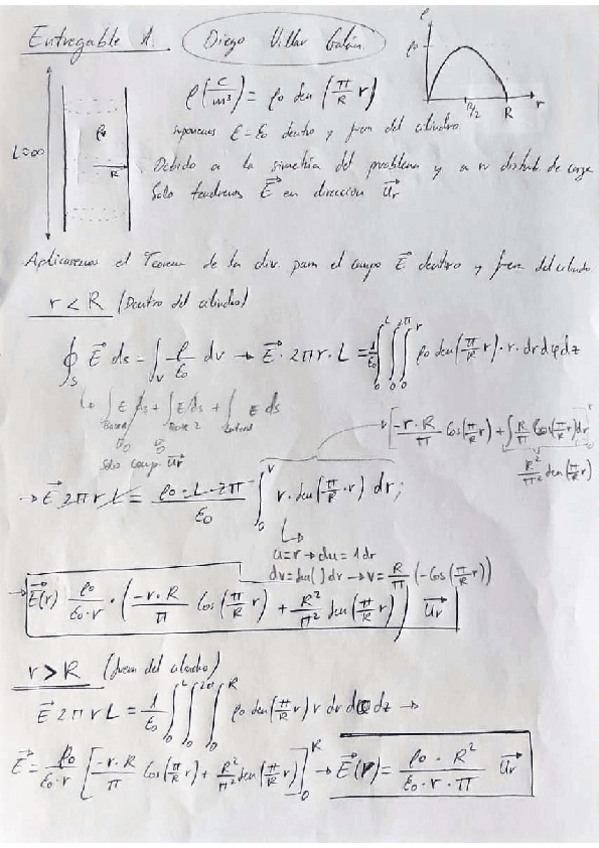 Entregable A. Diego Villar Galán
ρ
ρ₀
R/2 R r
L=∞
ρ₀
R
ρ(C/m³) = ρ₀ sen (π/R r)
suponemos ε=ε₀ dentro y fuera del cilindro
Debido a la simetría del problema y a su distrib. de carga
Solo tendremos E⃗ en dirección u⃗r
Aplicaremos el Teorema de la div. para el campo E⃗ dentro y fuera del cilindro
r < R (Dentro del cilindro)
∮s E⃗ ds = ∫v ρ/ε₀ dv → E⃗ · 2πr · L = 1/ε₀ ∫₀^L ∫₀^2π ∫₀^r ρ₀ sen(π/R r) · r · dr dφ dz
↳ ∫Base1 E ds + ∫Base 2 E ds + ∫Lateral E ds
0 0
Solo comp. u⃗r
[-r·R/π Cos(π/R r) + ∫ R/π Cos(π/R r) dr]₀^r
R²/π² sen(π/R r)
→ E⃗ 2πr L = ρ₀ · L · 2π/ε₀ ∫₀^r r · sen(π/R · r) dr;
u=r → du = 1 dr
dv = sen( ) dr → v = R/π (-Cos(π/R r))
→ E⃗(r) ρ₀/ε₀·r · (-r·R/π Cos(π/R r) + R²/π² sen(π/R r)) u⃗r
r > R (fuera del cilindro)
E⃗ 2πr L = 1/ε₀ ∫₀^L ∫₀^2π ∫₀^R ρ₀ sen(π/R r) r dr dφ dz →
E⃗ = ρ₀/ε₀·r [-r·R/π Cos(π/R r) + R²/π² sen(π/R r)]₀^R → E⃗(r) = ρ₀ · R²/ε₀ · r · π u⃗r